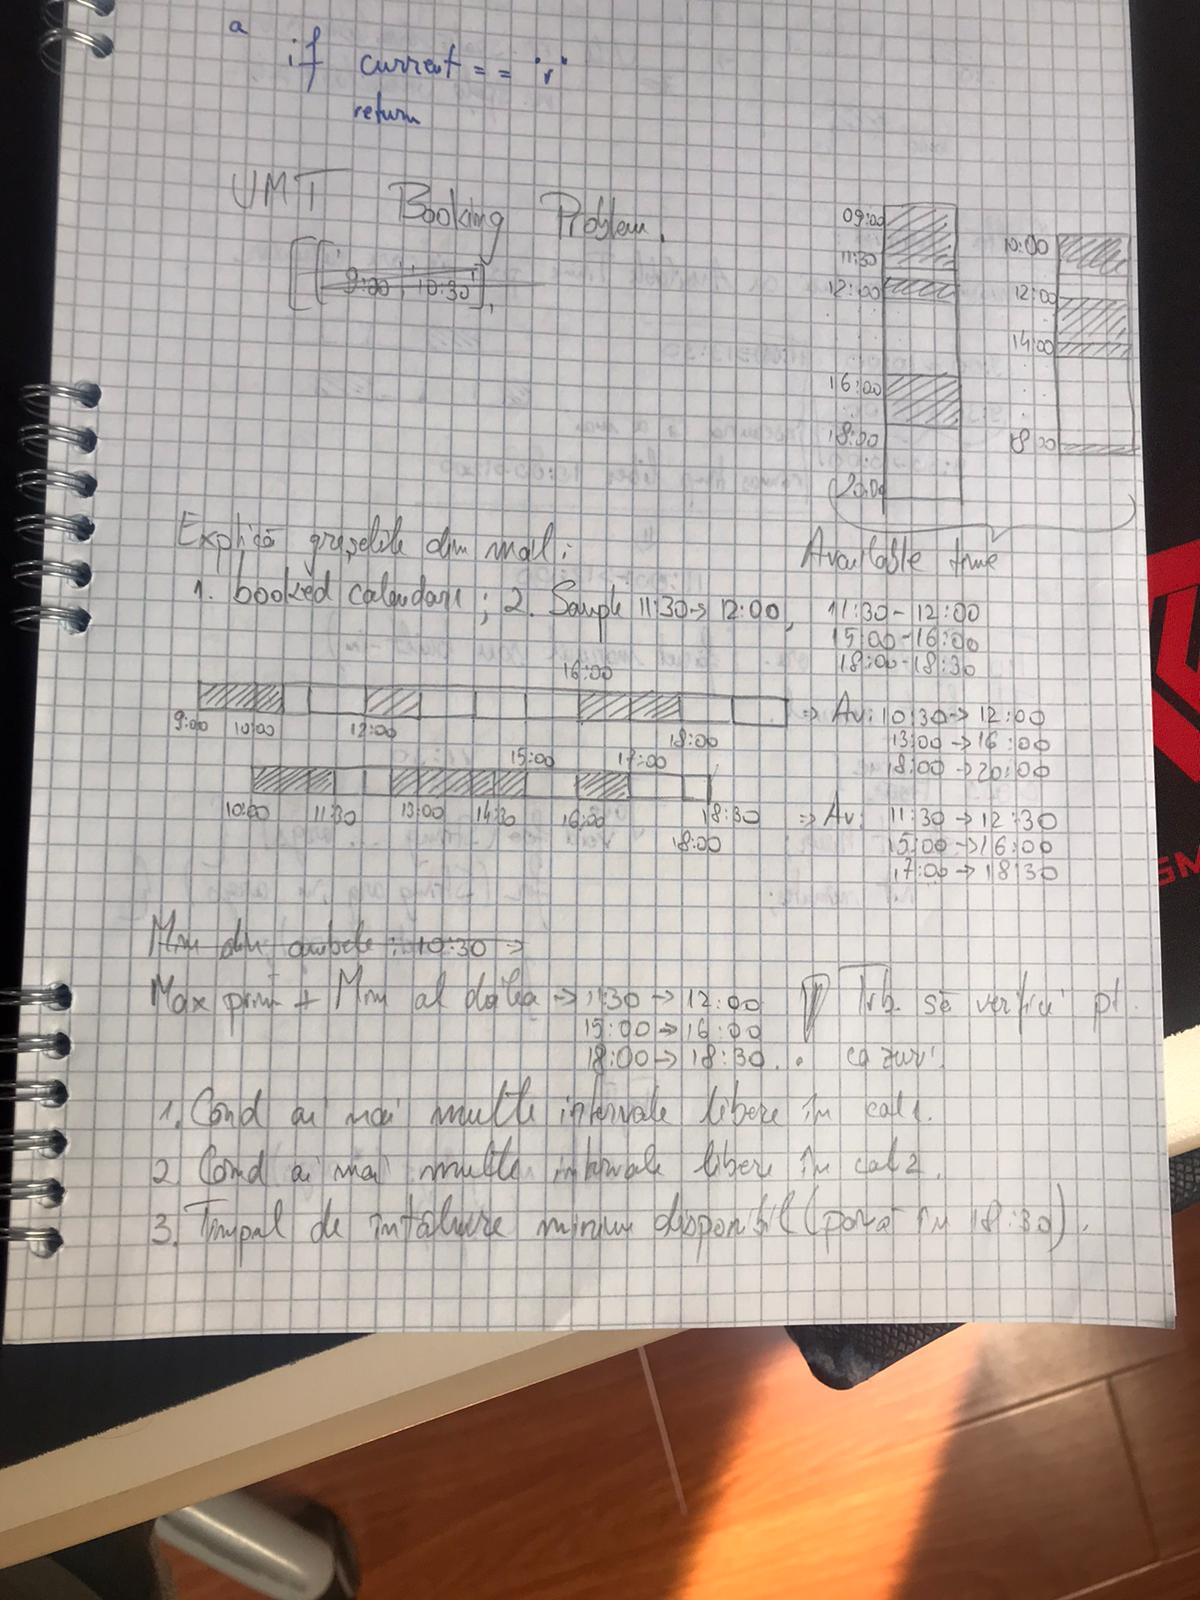 a
if current == 'r'
return
UMT Booking Problem.
[['9:00', '10:30'],
09:00
11:30
12:00
16:00
18:00
20:00
10:00
12:00
14:00
18:00
Explică greșelile din mail:
1. booked calendars; 2. Sample 11:30→12:00,
Available time
11:30-12:00
15:00-16:00
18:00-18:30
16:00
9:00 10:00 12:00 18:00
=> Av: 10:30→12:00
13:00→16:00
18:00→20:00
15:00 17:00
10:00 11:30 13:00 14:30 16:00 18:30
18:00
=> Av: 11:30→12:30
15:00→16:00
17:00→18:30
Min din ambele: 10:30 =>
Max prim + Min al doilea → 11:30→12:00 ! Trb. să verifici pt.
15:00→16:00
18:00→18:30. cazuri:
1. Cond ai mai multe intervale libere în cal1.
2. Cond ai mai multe intervale libere în cal2.
3. Timpul de întâlnire minim disponibil (până în 18:30).
GM